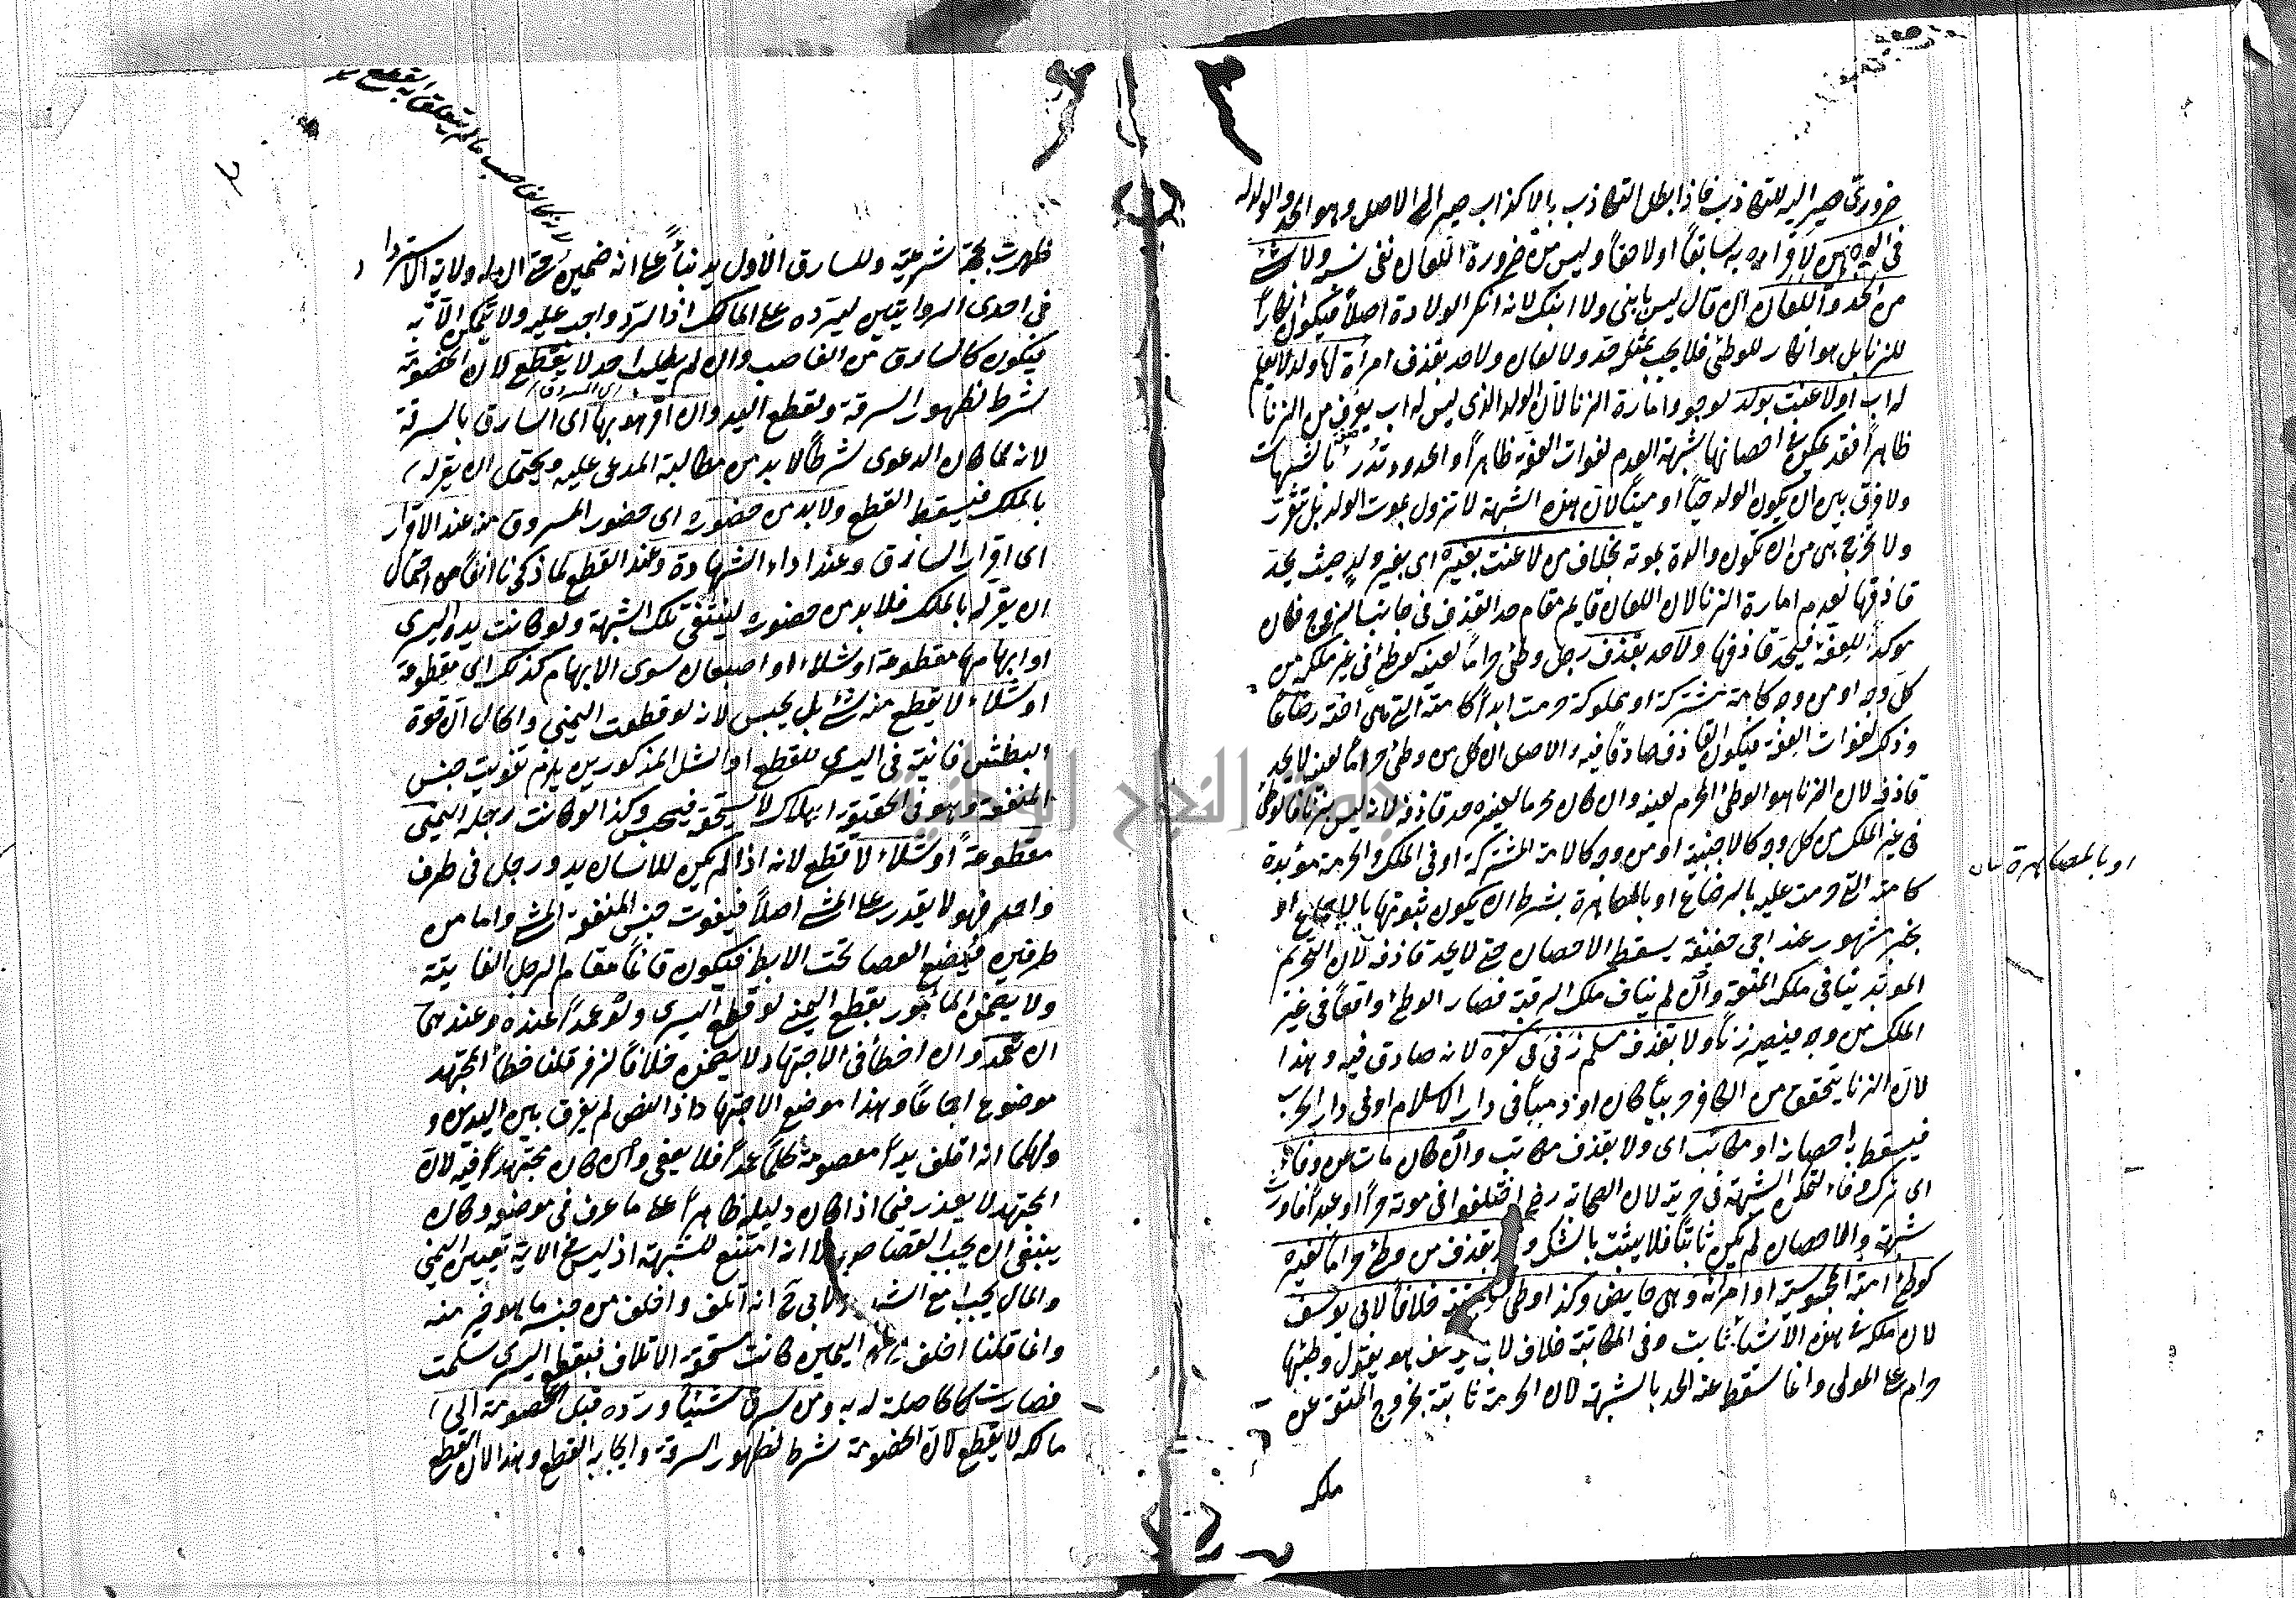 ضرورى صير اليه للتكاذب فاذا بطل التكاذب بالاكذاب صير الى الاصل وهو الحد والولد له
فى الوجهين لاقراره به سابقاً او لاحقاً وليس من ضرورة اللعان نفى نسبه ولا شئ
من الحد واللعان ان قال ليس بابنى ولا ابنك لانه انكر الولادة اصلاً فيكون انكاراً
للزنا بل هو انكار للوطئ فلا يجب بمثله حد ولا لعان ولا حد بقذف امرأة لها ولد لا يعلم
له اب او لاعنت بولد لوجود امارة الزنا لان الولد الذى ليس له اب يعرف من الزنا
ظاهراً فقد تمكن فى احصانها شبهة العدم لفوات العفة ظاهراً والحدود تدرء بالشبهات
ولا فرق بين ان يكون الولد حياً او ميتاً لان هذه الشبهة لا تزول بموت الولد بل تقررت
ولا يخرج هى من ان تكون والدة بموته بخلاف من لاعنت بغيره اى بغير ولد حيث يحد
قاذفها لعدم امارة الزنا لان اللعان قايم مقام حد القذف فى جانب الزوج فكان
موكداً للعفة فيحد قاذفها ولا حد بقذف رجل وطئ حراماً لعينه كوطئ فى غير ملكه من
كل وجه او من وجه كامة مشتركة او مملوكة حرمت ابداً كامته التى هى اخته رضاعاً
وذلك لفوات العفة فيكون القاذف صادقاً فيه والاصل ان كل من وطئ حراماً لعينه لا يحد
قاذفه لان الزنا هو الوطئ المحرم لعينه وان كان محرما لغيره حد قاذفه لانه ليس بزنا فالوطئ
فى غير الملك من كل وجه كالاجنبية او من وجه كالامة المشتركة او فى الملك والحرمة مؤبدة
او بالمصاهرة
كامته التى حرمت عليه بالرضاع او بالمصاهرة بشرط ان يكون ثبوتها بالاجماع او
بخبر مشهور عند ابى حنيفة يسقط الاحصان حتى لا يحد قاذفه لان التحريم
الموبد ينافى ملك المتعة وان لم يناف ملك الرقبة فصار الوطئ واقعاً فى غير
الملك من وجه فيصير زناً ولا بقذف مسلم زنى فى كفره لانه صادق فيه وهذا
لان الزنا يتحقق من الكافر حربياً كان او ذمياً فى دار الاسلام او فى دار الحرب
فيسقط به احصانه او مكاتب اى ولا بقذف مكاتب وان كان مات عن وفاء
اى ترك وفاء لتمكن الشبهة فى حريته لان الصحابة رض اختلفوا فى موته حراً او عبداً فاورث
شبهة والاحصان لم يكن ثابتاً فلا يثبت بالشك و بقذف من وطئ حراماً لغيره
كوطئ امته المجوسية او امرأته وهى حايض وكذا وطئ مكاتبته خلافاً لابى يوسف
لان ملكه فى هذه الاشياء ثابت وفى المكاتبة خلاف لابى يوسف هو يقول وطئها
حرام على المولى وانما سقط عنه الحد بالشبهة لان الحرمة ثابتة بخروج المتعة عن
ملكه
ما لم يتعلق به القطع
ظهرت بحجة شرعية وللسارق الاول يد بناءً على انه ضمين حتى ان له ولاية الاسترداد
فى احدى الروايتين ليرده على المالك اذ الرد واجب عليه ولا يتمكن الا به
فيكون كالسارق من الغاصب وان لم يطلب احد لا يقطع لان الخصومة
شرط لظهور السرقة ولقطع اليد وان اقر هو بها اى السارق بالسرقة
لانه لما كان الدعوى شرطاً لا بد من مطالبة المدعى عليه ويحتمل ان يقر له
بالملك فيسقط القطع ولا بد من حضوره اى حضور المسروق منه عند الاقرار
اى اقرار السارق وعند اداء الشهادة وعند القطع لما ذكرنا آنفاً من احتمال
ان يقر له بالملك فلا بد من حضوره لينتفى تلك الشبهة ولو كانت يده اليسرى
او ابهامها مقطوعة او شلاء او اصبعان سوى الابهام كذلك اى مقطوعة
او شلاء لا يقطع منه شئ بل يحبس لانه لو قطعت اليمنى والحال ان قوة
البطش فانية فى اليسرى للقطع او الشلل المذكورين يلزم تفويت جنس
المنفعة وهو فى الحقيقة اهلاك لا يستحقه فيحبس وكذا لو كانت رجله اليمنى
مقطوعة او شلاء لا قطع لانه اذا لم يكن للانسان يد ورجل فى طرف
واحد فهو لا يقدر على المشى اصلاً فيفوت جنس المنفعة المشى واما من
طرفين فيضع العصا تحت الابط فيكون قائماً مقام الرجل الفايتة
ولا يضمن المأمور بقطع اليمنى لو قطع اليسرى ولو عمداً عنده وعندهما
ان تعمد وان اخطأ فى الاجتهاد لا يضمن خلافاً لزفر قلنا خطأ المجتهد
موضوع اجماعاً وهذا موضع الاجتهاد اذ النص لم يفرق بين اليدين و
ولهما انه اتلف يداً معصومة ظلماً عمداً فلا يعفى وان كان مجتهداً فيه لان
المجتهد لا يعذر فيما اذا كان دليله ظاهراً على ما عرف فى موضعه وكان
ينبغى ان يجب القصاص الا انه امتنع للشبهة اذ ليس فى الاية تعيين اليمنى
والمال يجب مع الشبهة ولابى ح انه اتلف واخلف من جنسه ما هو خير منه
وانما قلنا اخلف لان اليمين كانت مستحقة الاتلاف فبقطع اليسرى سلمت
فصارت كالحاصلة له به ومن سرق شيئاً ورده قبل الخصومة الى
مالكه لا يقطع لان الخصومة شرط لظهور السرقة وايجاب القطع وهذا لان القطع
جامعة النجاح الوطنية